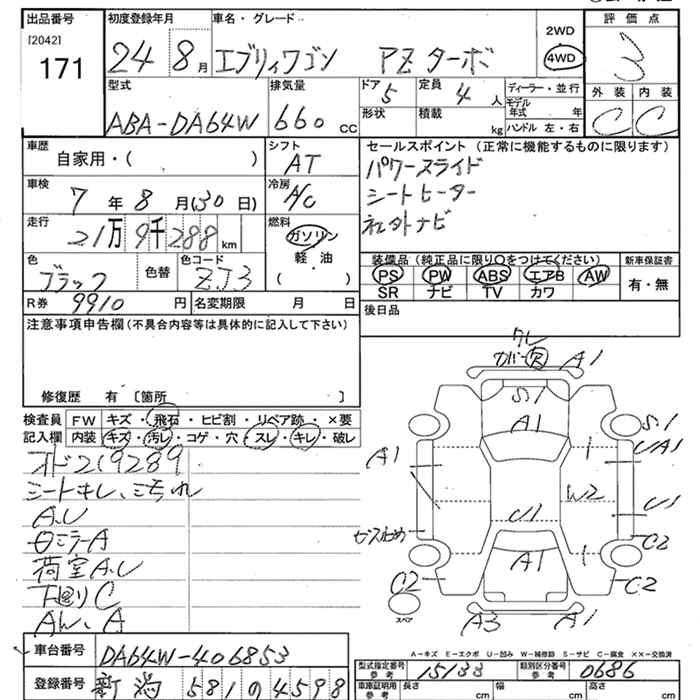 出品番号 初度登録年月 車名・グレード 評価点
[2042] 171
24 8月 エブリィワゴン PZ ターボ 2WD 4WD 3
型式 排気量 ドア 定員 ディーラー・並行 外装 内装
ABA-DA64W 660 cc 5 4人 モデル年式 年 C C
形状 積載 kg ハンドル 左・右
車歴 シフト セールスポイント (正常に機能するものに限ります)
自家用・( ) AT パワースライド
車検 冷房 シートヒーター
7年8月(30日) A/C 社外ナビ
走行 燃料
21万9千288km ガソリン
軽油
( )
色 色替 色コード 装備品(純正品に限り○をつけてください) 新車保証書
ブラック ZJ3 PS PW ABS エアB AW 有・無
SR ナビ TV カワ
R券 9910円 名変期限 月 日 後日品
注意事項申告欄(不具合内容等は具体的に記入して下さい)
修復歴 有 〔箇所 〕
検査員記入欄 FW キズ・飛石・ヒビ割・リペア跡・×要
内装 キズ・汚レ・コゲ・穴・スレ・キレ・破レ
オド219289
シートキレ、ミち れ
A.U
ミラーA
荷室A.U
下廻りC
A
ワレ
カバー欠 A1
S1
A1 S1
A1 1 UA1
W2 U1
U1
C2
A1 1
C2 C2
スペア
A3 A1
A-キズ E-エクボ U-凹み W-補修跡 S-サビ C-腐食 ××-交換済
車台番号 DA64W-406853
型式指定番号 参考 15133 類別区分番号 参考 0686
登録番号 新潟 581 の 4598
車庫証明用 参考 長さ cm 幅 cm 高さ cm